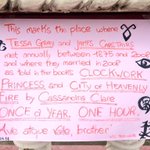 This marks the place where
TESSA GRAY and JAMES CARSTAIRS
met annually between 1878 and 2008
and where they married in 2008
as told in the books CLOCKWORK
PRINCESS and CITY OF HEAVENLY
FIRE by Cassandra Clare
ONCE A YEAR. ONE HOUR.
Ave atque vale, brother